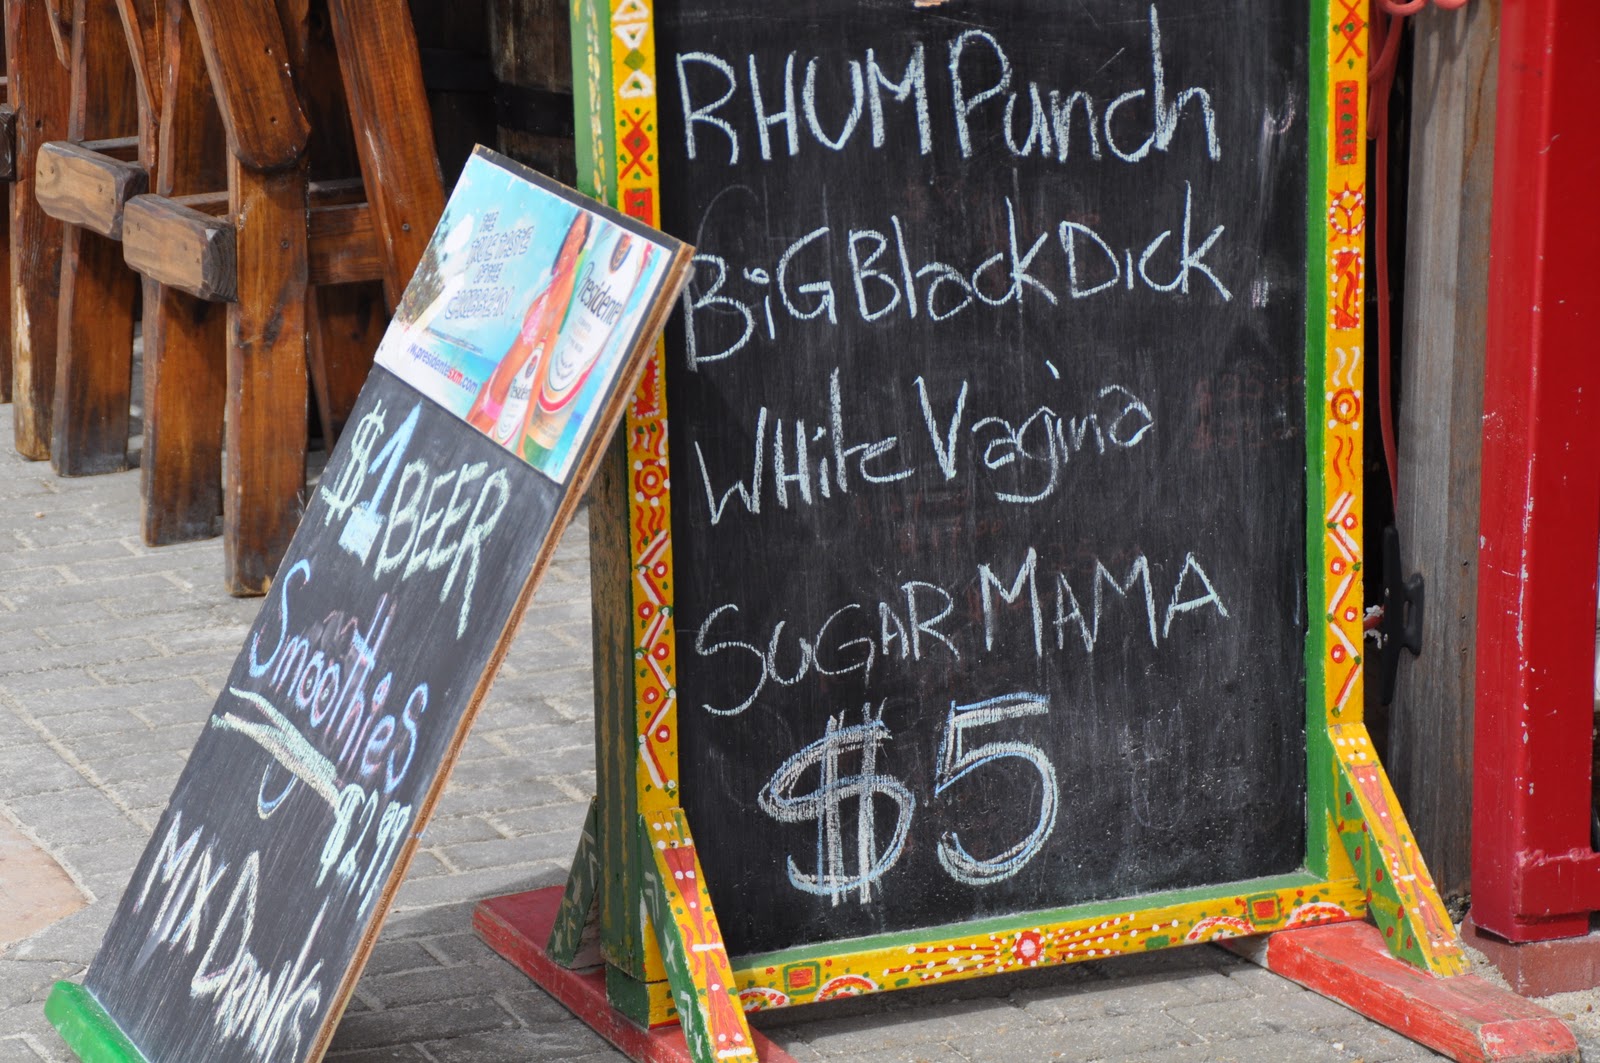 RHUM Punch
BiG Black Dick
WHite Vagina
SUGAR MAMA
$5
Presidente
Presidente
w.presidentesxm.com
$1 BEER
Smoothies
$2.99
MIX DRINKS